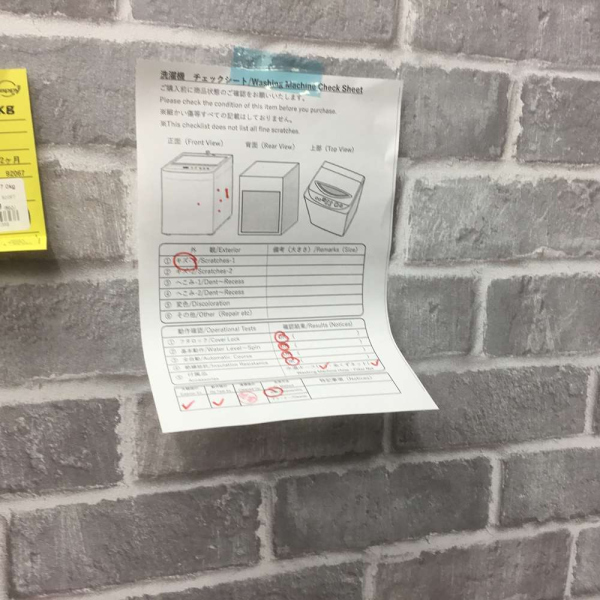 洗濯機 チェックシート/Washing Machine Check Sheet
ご購入前に商品状態のご確認をお願いいたします。
Please check the condition of this item before you purchase.
※細かい傷等すべての記載はしておりません。
※This checklist does not list all fine scratches.
正面 (Front View) 背面 (Rear View) 上部 (Top View)
外 観/Exterior 備考 (大きさ) /Remarks (Size)
① キズ-1/Scratches-1
② キズ-2/Scratches-2
③ へこみ-1/Dent~Recess
④ へこみ-2/Dent~Recess
⑤ 変色/Discoloration
⑥ その他/Other (Repair etc)
動作確認/Operational Tests 確認結果/Results (Notices)
① フタロック/Cover Lock
② 基本動作/Water Lever~Spin
③ 全自動/Automatic Course
④ 絶縁抵抗/Insulation Resistance
⑤ 付属品
特記事項 (Notices)
KG
2ヶ月
92067
7.0kg